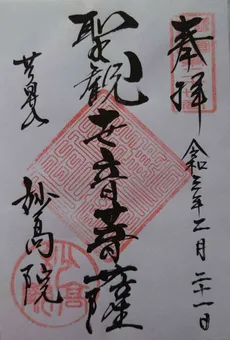 奉拝
令和三年二月二十一日
聖観世音菩薩
妙高院